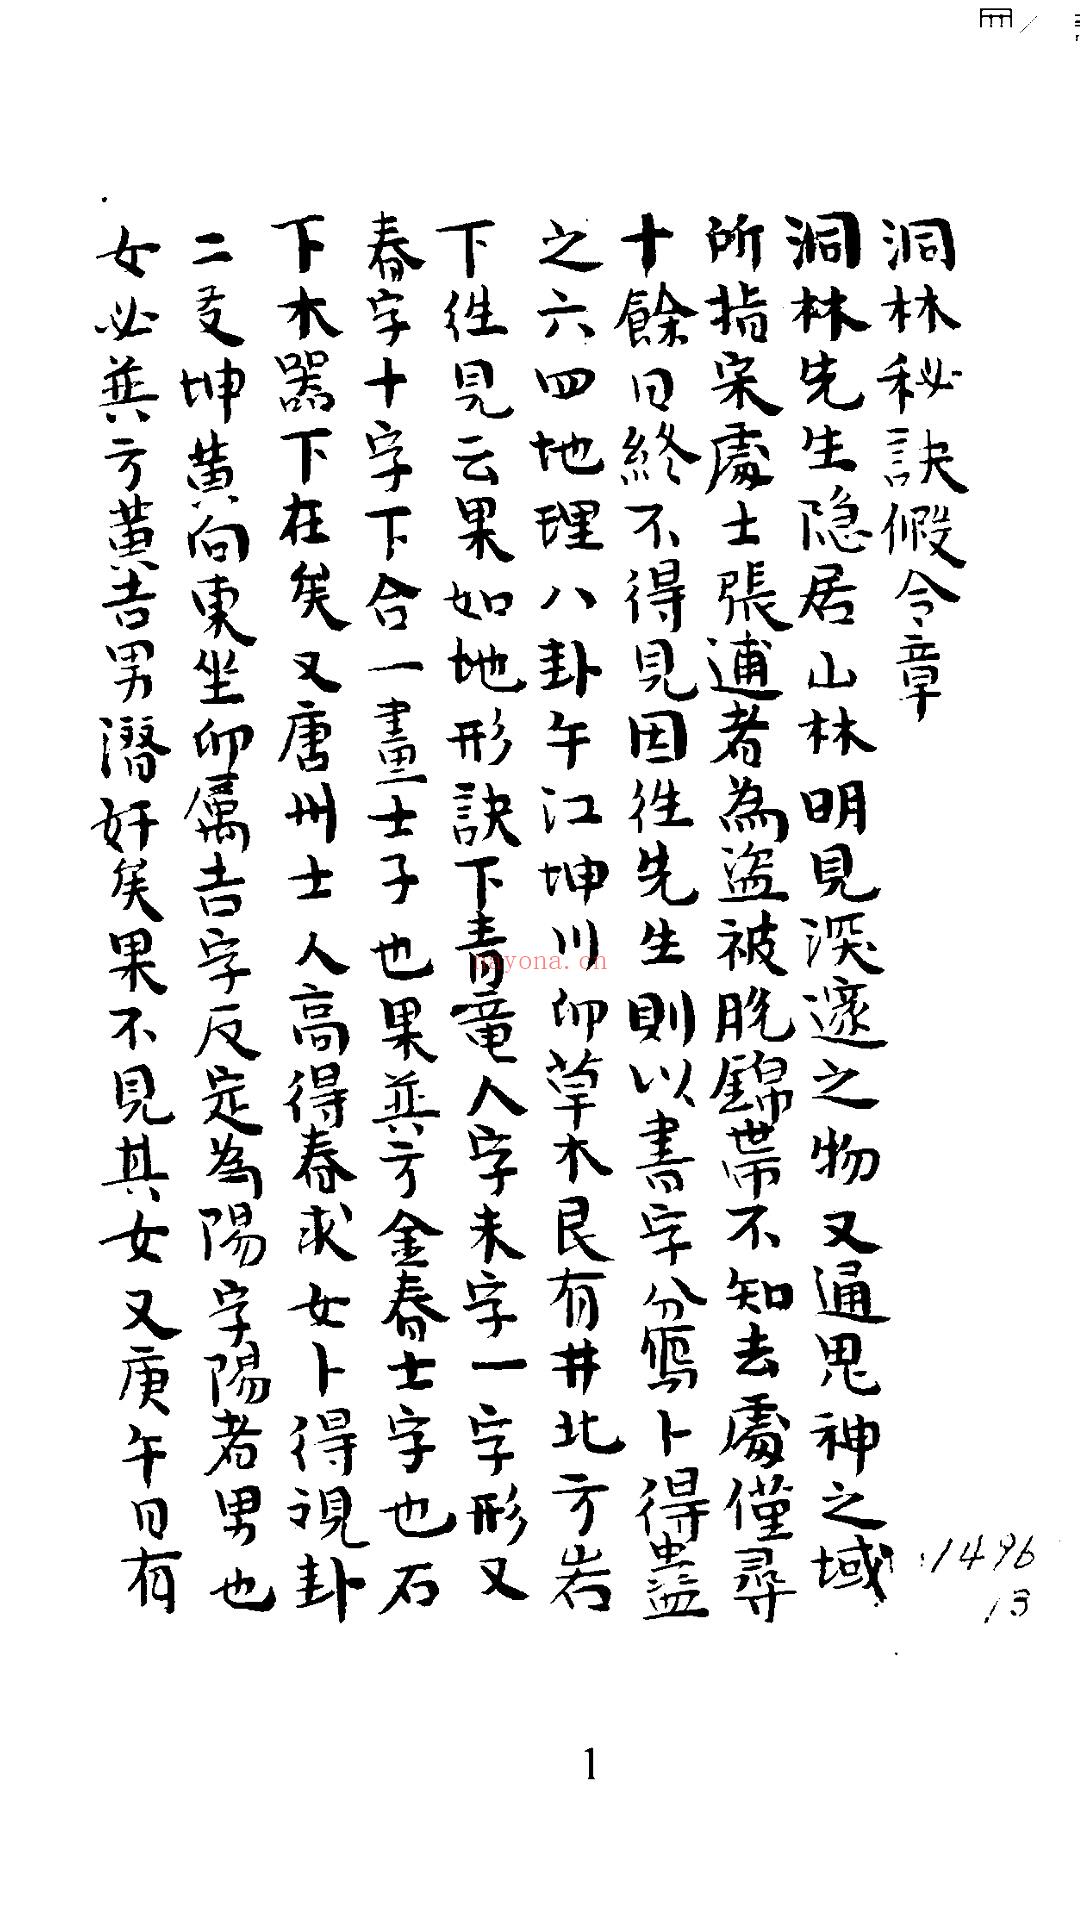 洞林秘訣假令章
洞林先生隐居山林明見深邃之物又通鬼神之域
所指宋處士張逋者為盜被脫錦帶不知去處僅尋
十餘日終不得見因往先生則以書字分寫卜得蠱
之六四地理八卦午江坤川卯草木艮有井北方岩
下往見云果如地形訣下青竜人字未字一字形又
春字十字下合一畫士子也果並方金春士字也石
下木器下在矣又唐州士人高得春求女卜得視卦
二爻坤黄向東坐卯属吉字反定為陽字陽者男也
女必並方黄吉男潛奸矣果不見其女又庚午日有
1496
13
nayona.cn
1